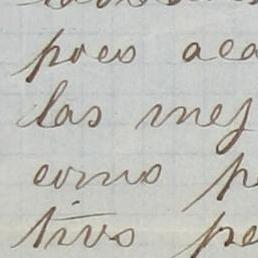 poco aca
las mej
como p
tivo pe